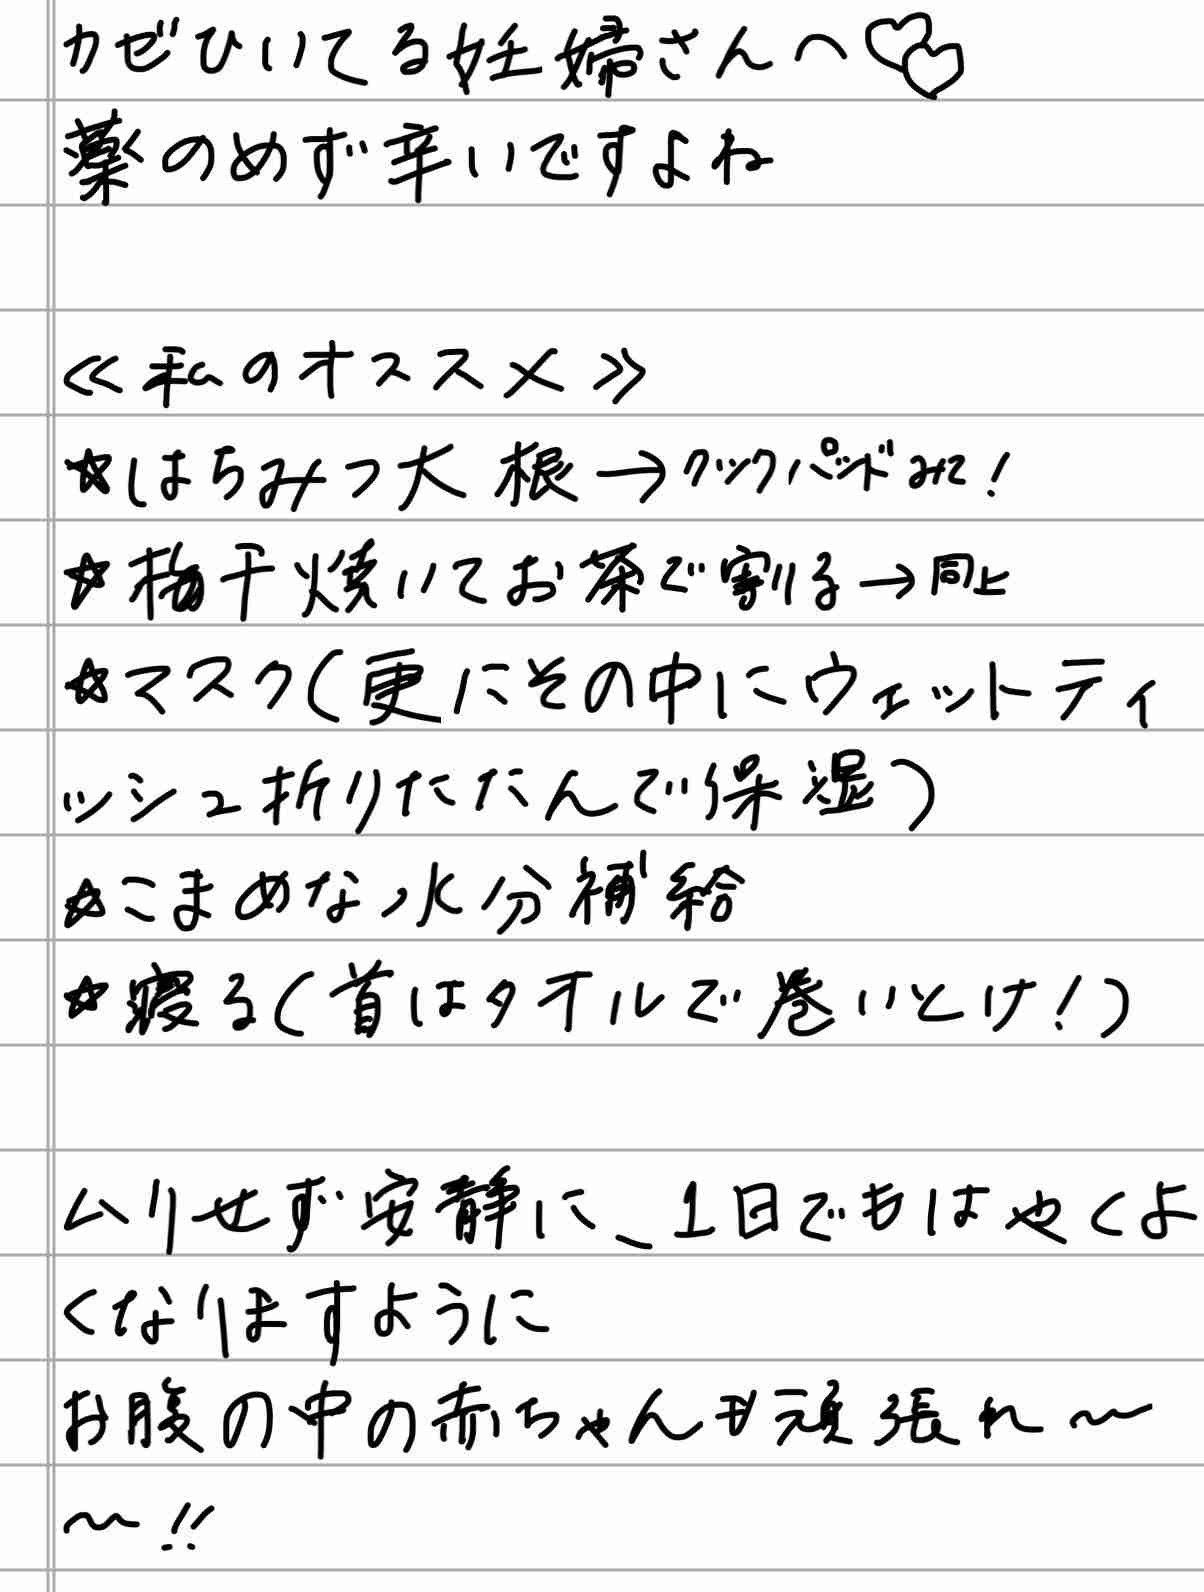 カゼひいてる妊婦さんへ♡♡
薬のめず辛いですよね
≪私のオススメ≫
☆はちみつ大根→クックパッドみて!
☆梅干焼いてお茶で割る→同上
☆マスク(更にその中にウェットティ
ッシュ折りたたんで保湿)
☆こまめな水分補給
☆寝る(首はタオルで巻いとけ!)
ムリせず安静に、1日でもはやくよ
くなりますように
お腹の中の赤ちゃんも頑張れ〜
〜!!